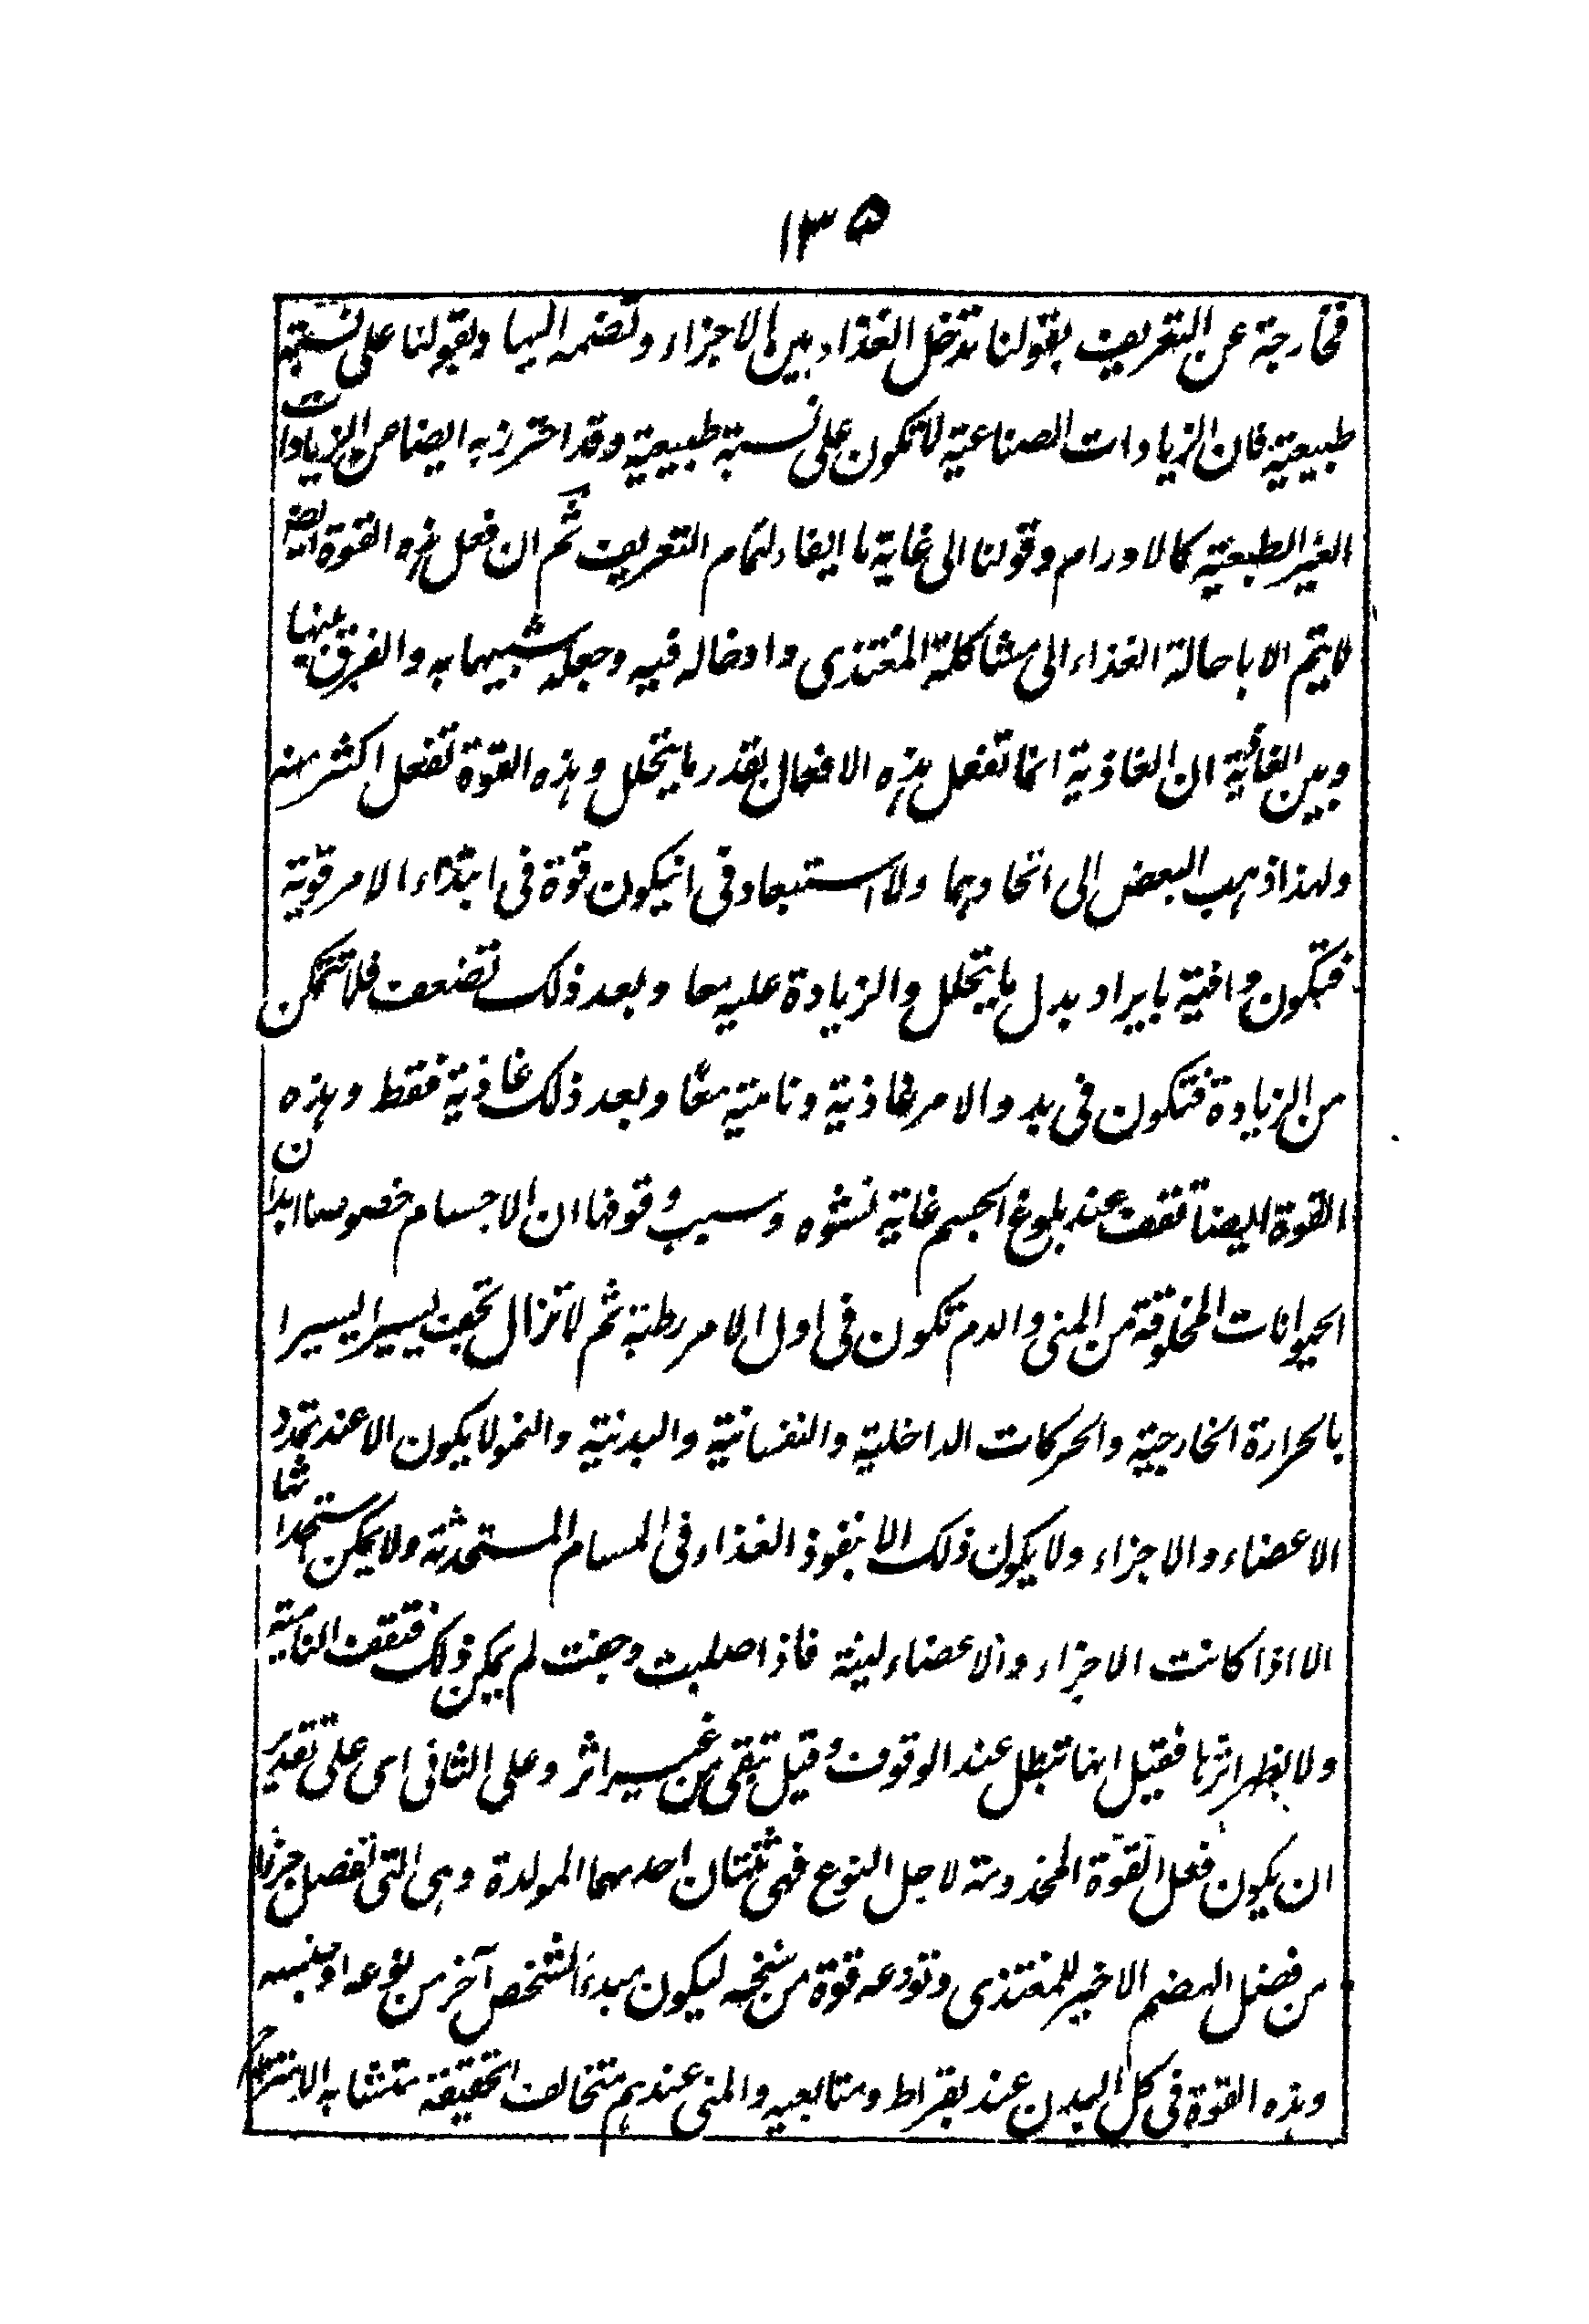 ١٣٥
فخارجة عن التعريف بقولنا تدخل الغذاء بين الاجزاء وتضمه اليها وبقولنا على نسبة
طبيعية فان الزيادات الصناعية لا تكون على نسبة طبيعية وقد احترز به ايضا عن الزيادات
الغير الطبعية كالاورام وقولنا الى غاية ما ايفاء لتمام التعريف ثم ان فعل هذه القوة ايضا
لا يتم الا باحالة الغذاء الى مشاكلة المغتذى وادخاله فيه وجعله شبيها به والفرق بينها
وبين الغاذية ان الغاذية انما تفعل هذه الافعال بقدر ما يتحلل وهذه القوة تفعل اكثر منه
ولهذا ذهب البعض الى اتحادهما ولا استبعاد فى انيكون قوة فى ابتداء الامر قوية
فتكون وافية بايراد بدل ما يتحلل والزيادة عليه معا وبعد ذلك تضعف فلا تتمكن
من الزيادة فتكون فى بدو الامر غاذية ونامية معا وبعد ذلك غاذية فقط وهذه
القوة ايضا تقف عند بلوغ الجسم غاية نشوه وسبب وقوفها ان الاجسام خصوصا ابدان
الحيوانات المخلوقة من المنى والدم تكون فى اول الامر رطبة ثم لا تزال تجف يسيرا يسيرا
بالحرارة الخارجية والحركات الداخلية والنفسانية والبدنية والنمو لا يكون الا عند تمدد
الاعضاء والاجزاء ولا يكون ذلك الا بنفوذ الغذاء فى المسام المستحدثة ولا يمكن استحداثها
الا اذا كانت الاجزاء والاعضاء لينة فاذا صلبت وجفت لم يمكن ذلك فتقف النامية
ولا يظهر اثرها فقيل انها تبطل عند الوقوف وقيل تبقى من غير اثر وعلى الثانى اى على تقدير
ان يكون فعل القوة المخدومة لاجل النوع فهى ثنتان احدهما المولدة وهى التى تفصل جزءا
من فضل الهضم الاخير للمغتذى وتودعه قوة من سنخه ليكون مبدءَ الشخص آخر من نوعه او جنسه
وهذه القوة فى كل البدن عند بقراط ومتابعيه والمنى عندهم متخالف الحقيقة متشابه الامتزاج